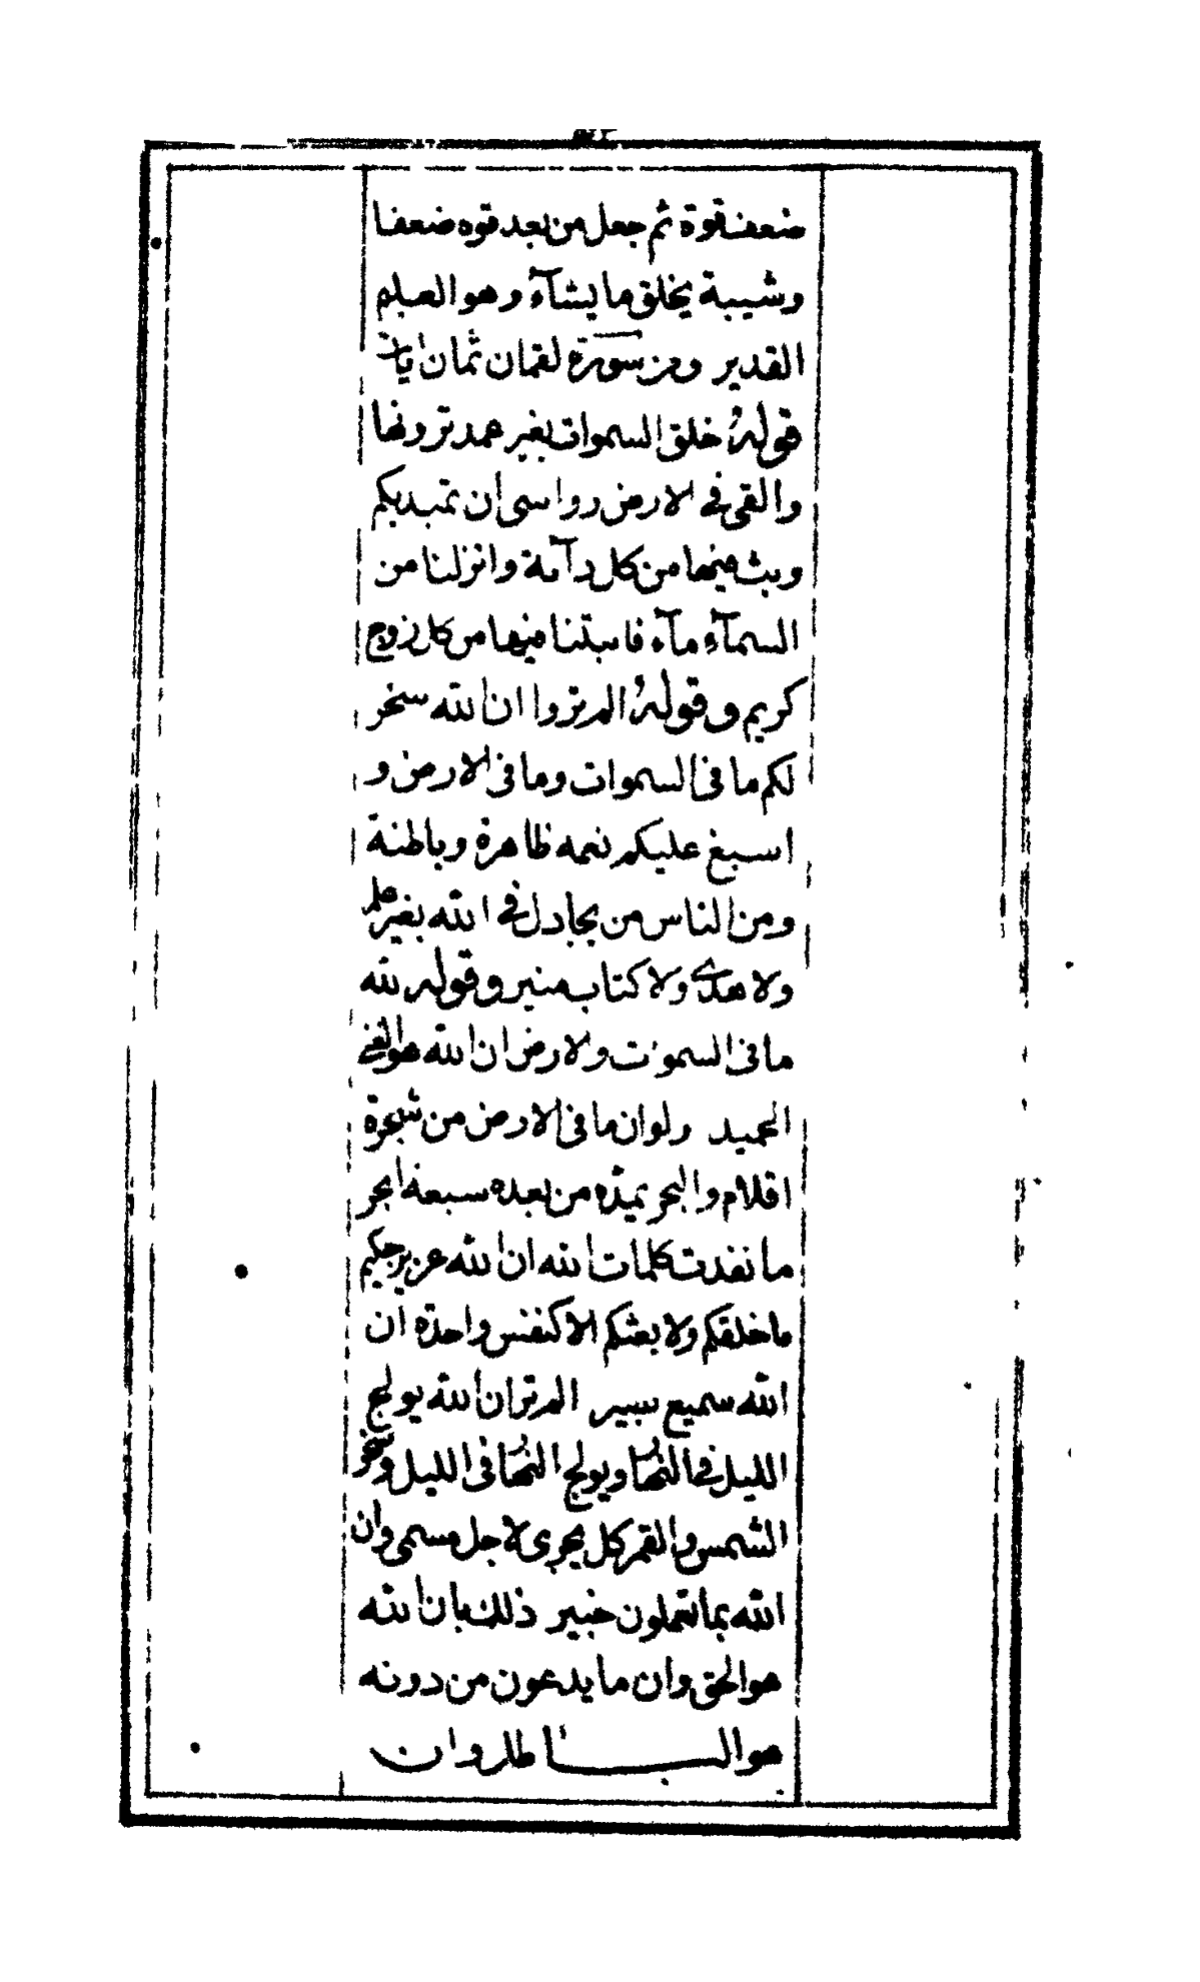 ضعف قوة ثم جعل من بعد قوه ضعفا
وشيبة يخلق ما يشآء وهو العليم
القدير ومن سورة لقمان ثمان ايات
قولهُ خلق السموات بغير عمد ترونها
والقى في الارض رواسى ان تميد بكم
وبث فيها من كل دآبة وانزلنا من
السمآء مآء فانبتنا فيها من كل زوج
كريم وقولهُ الم تروا ان الله سخر
لكم ما فى السموات وما فى الارض و
اسبغ عليكم نعمه ظاهرة وباطنة
ومن الناس من يجادل في الله بغير علم
ولا هدى ولا كتاب منير وقوله لله
ما فى السموات والارض ان الله هو الغني
الحميد ولو ان ما فى الارض من شجرة
اقلام والبحر يمدّه من بعده سبعة ابحر
ما نفدت كلمات الله ان الله عزيز حكيم
ما خلقكم ولا بعثكم الا كنفس واحدة ان
الله سميع بصير الم تر ان الله يولج
الليل في النهار ويولج النهار فى الليل وسخر
الشمس والقمر كل يجرى لاجل مسمى وان
الله بما تعملون خبير ذلك بان الله
هو الحق وان ما يدعون من دونه
هو الباطل وان